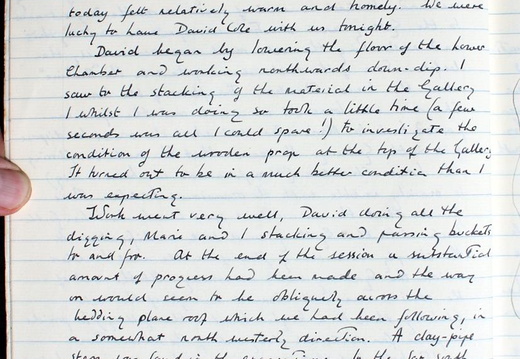 today felt relatively warm and homely. We were
lucky to have David Cole with us tonight.
David began by lowering the floor of the lower
Chamber and working northwards down-dip. I
saw to the stacking of the material in the Gallery
& whilst I was doing so took a little time (a few
seconds was all I could spare!) to investigate the
condition of the wooden prop at the top of the Gallery.
It turned out to be in a much better condition than I
was expecting.
Work went very well, David doing all the
digging, Marie and I stacking and passing buckets
to and fro. At the end of the session a substantial
amount of progress had been made and the way
on would seem to be obliquely across the
bedding plane roof which we had been following, in
a somewhat north westerly direction. A clay-pipe
stem was found in the